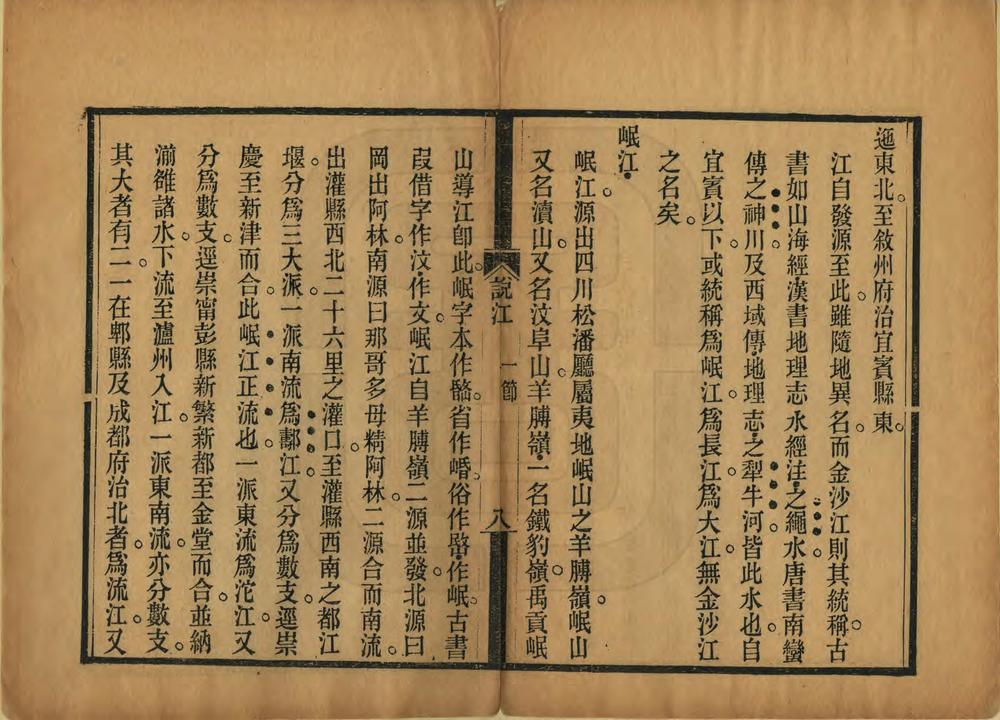 迤東北至敘州府治宜賓縣東
江自發源至此雖隨地異名而金沙江則其統稱古
書如山海經漢書地理志水經注之繩水唐書南蠻
傳之神川及西域傳地理志之犂牛河皆此水也自
宜賓以下或統稱爲岷江爲長江爲大江無金沙江
之名矣
岷江
岷江源出四川松潘廳屬夷地岷山之羊膊嶺岷山
又名瀆山又名汶阜山羊膊嶺一名鐵豹嶺禹貢岷
說江 一節 八
山導江卽此岷字本作𢿱省作㟭俗作㟩作岷古書
叚借字作汶作文岷江自羊膊嶺二源並發北源曰
岡出阿林南源曰那哥多母精阿林二源合而南流
出灌縣西北二十六里之灌口至灌縣西南之都江
堰分爲三大派一派南流爲鄩江又分爲數支逕崇
慶至新津而合此岷江正流也一派東流爲沱江又
分爲數支逕崇甯彭縣新繁新都至金堂而合並納
湔雒諸水下流至瀘州入江一派東南流亦分數支
其大者有二一在郫縣及成都府治北者爲流江又